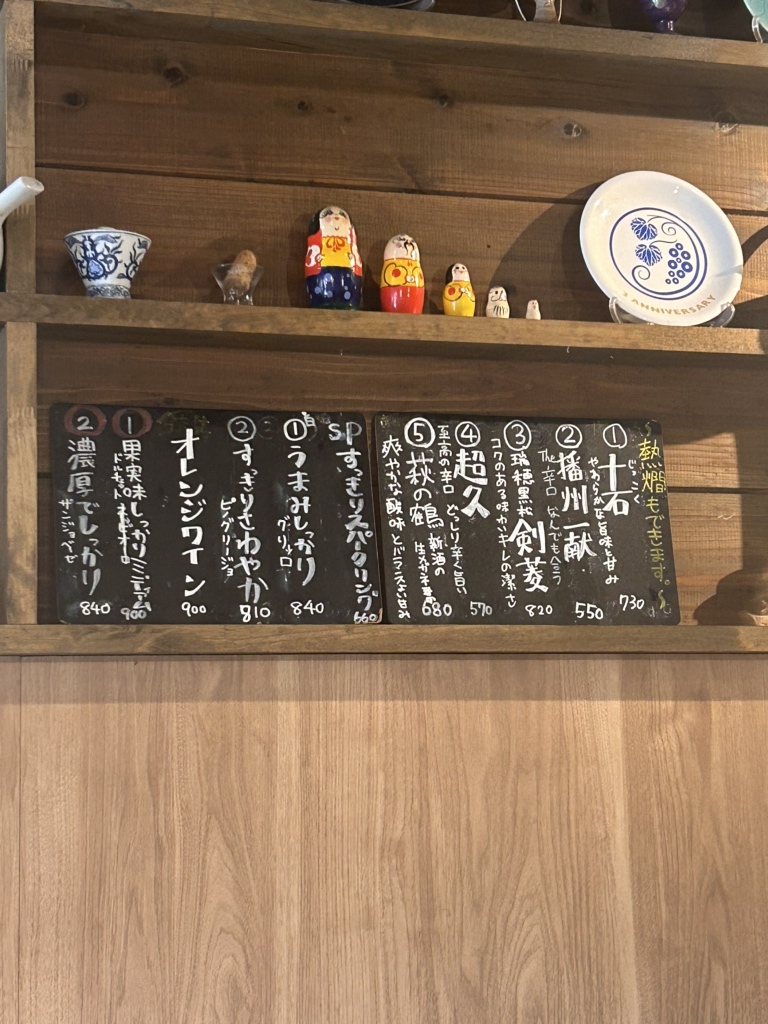 3 ANNIVERSARY
熱燗もできます。
① 十石 じっこく
やわらかな旨味と甘み
730
② 播州一献
The 辛口 なんでも合う
550
③ 瑞穂黒松 剣菱
コクのある味わいキレの潔さ
820
④ 超久
至高の辛口 どっしり辛く旨い
570
⑤ 萩の鶴 新酒の
680
爽やかな酸味とバランスよい甘み
SP すっきりスパークリング 660
白
① うまみしっかり
840
② すっきりさわやか
ピノグリージョ
810
オレンジワイン
900
① 果実味しっかりミディアム
900
② 濃厚でしっかり
840